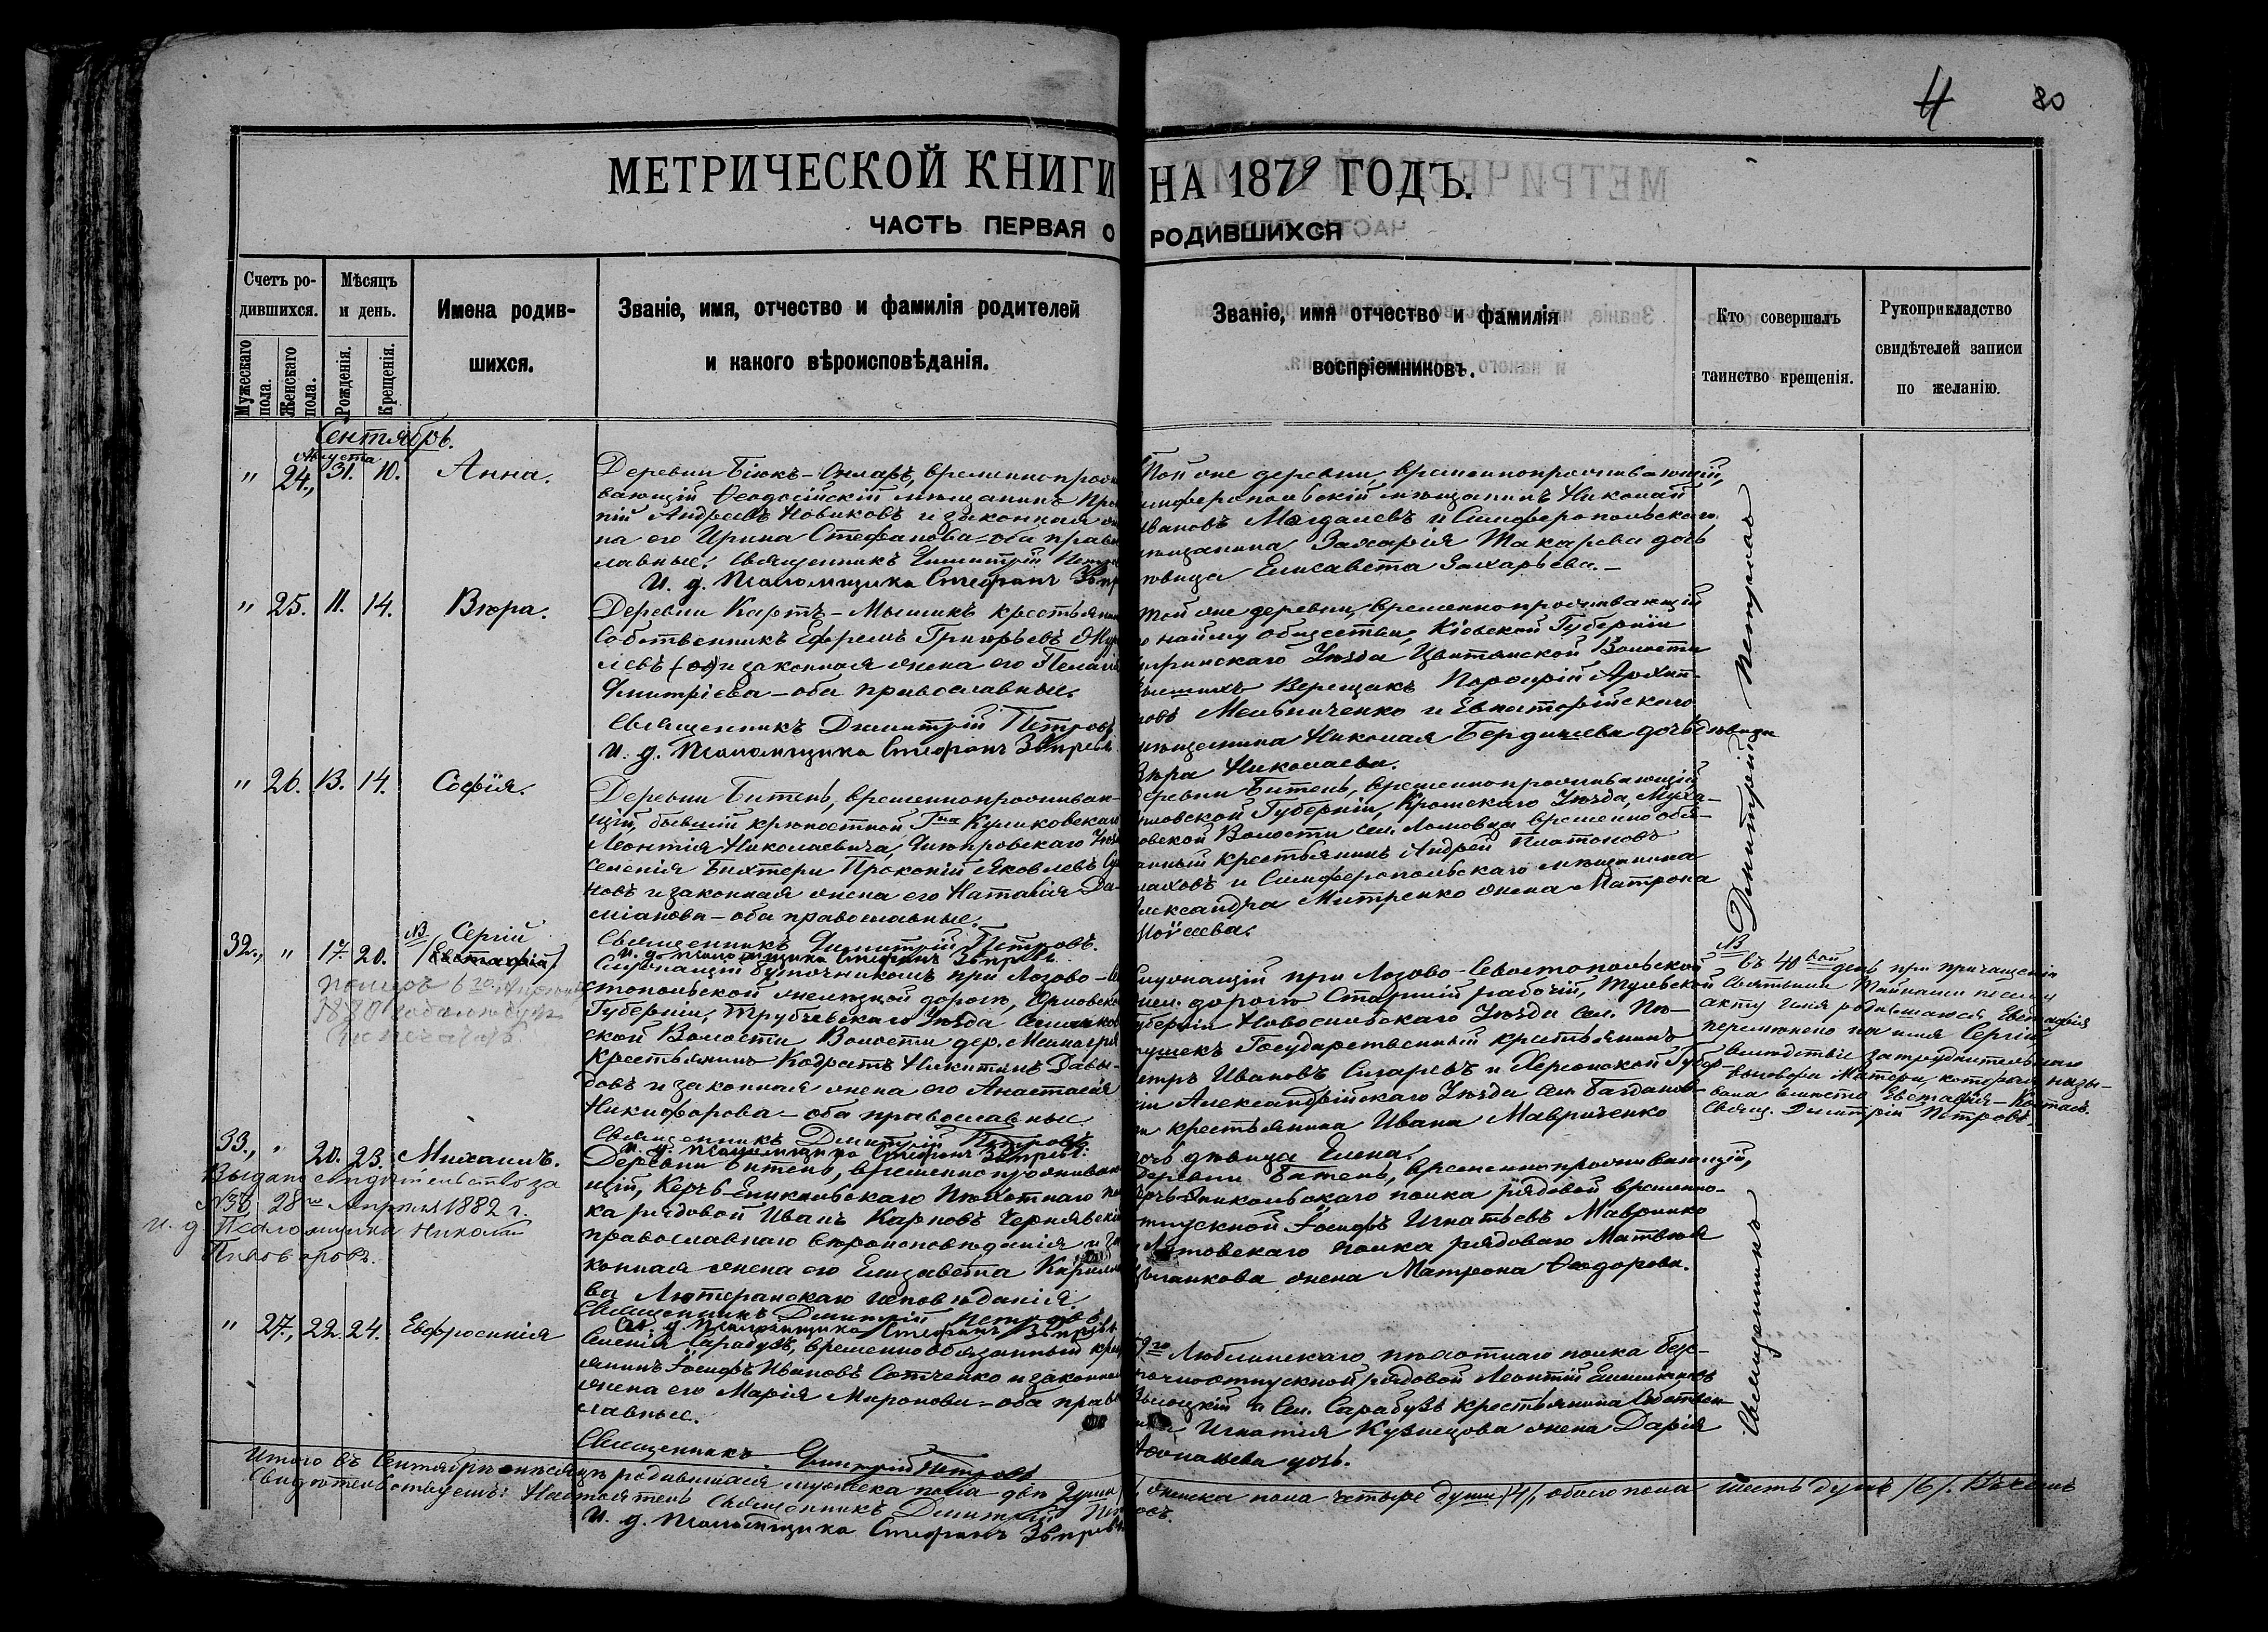 4 80
МЕТРИЧЕСКОЙ КНИГИ НА 1879 ГОДЪ.
ЧАСТЬ ПЕРВАЯ О РОДИВШИХСЯ
Счетъ ро-
дившихся.
Мужескаго пола.
Женскаго пола.
Мѣсяцъ
и день.
Рожденія.
Крещенія.
Имена родив-
шихся.
Званіе, имя, отчество и фамилія родителей
и какого вѣроисповѣданія.
Званіе, имя отчество и фамилія
воспріемниковъ.
Кто совершалъ
таинство крещенія.
Рукоприкладство
свидѣтелей записи
по желанію.
Сентябрь.
Августа
" 24., 31. 10. Анна.
Деревни Біюкъ-Онларъ, временнопрожи
вающій Ѳеодосійскій мѣщанинъ
пій Андреевъ Новиковъ и законная
на его Ирина Стефанова – оба право
славные. Священникъ Димитрій
И. д. Псаломщика Стефанъ
Той же деревни, временнопроживающій,
имферопольскій мѣщанинъ Николай
Ивановъ Магдалевъ и Симферопольскаго
мѣщанина Захарія Токарева дочь
дѣвица Елисавета Захарьева. –
" 25. 11. 14. Вѣра.
Деревни Картъ-Мышикъ
Собственникъ Ефремъ Григорьевъ
левъ и законная жена его
Дмитріева – оба православные.
Священникъ Димитрій Петровъ
И. д. Псаломщика Стефанъ
той же деревни, временнопроживающій
о найму общества, Кіевской Губерніи
Уѣзда Волости
Верещакъ Порфирій Архип-
повъ Мельниченко и Евпаторійскаго
мѣщанина Николая Бердишева дочь дѣвица
Вѣра Николаева.
" 26. 13. 14. Софія.
Деревни Битень, временнопроживаю-
щій, бывшій крѣпостной Г-на Куликовскаго
Леонтія Николаевича, Днѣпровскаго
селенія Бехтери Прокопій Яковлевъ
новъ и законная жена его Наталія Да-
міанова – оба православные.
Священникъ Димитрій Петровъ.
И. д. Псаломщика Стефанъ
деревни Битень, временнопроживающій
рловской Губерніи, Кромскаго Уѣзда,
овской Волости сел. Ломовца временно обя-
занный крестьянинъ Андрей Платоновъ
и Симферопольскаго мѣщанина
Александра Митренко жена Матрона
Моѵсеева.
32., " 17. 20. NB Сергій
(Евстафій)
померъ 6го
1880 года
Служащій будочникомъ при Лозово-Се
стопольской желѣзной дорогѣ, Орловской
Губерніи, Трубчевскаго Уѣзда
ской Волости Волости дер.
крестьянинъ Кодратъ Никитинъ Давы-
довъ и законная жена его Анастасія
Никифорова – оба православные.
Священникъ Димитрій Петровъ
И. д. Псаломщика Стефанъ
Служащій при Лозово-Севастопольской
жел. дорогѣ Старшій рабочій, Тульской
Губерніи Новосильскаго Уѣзда сел. Пѣ-
тушекъ Государственный крестьянинъ
етръ Ивановъ и Херсонской Губер-
ніи Александрійскаго Уѣзда сел. Богданов-
ки крестьянина Ивана Мавриченко
дочь дѣвица Елена.
NB
Въ 40 вой день при причащеніи
Святыми Тайнами по сему
акту имя родившагося Евстафія
перемѣнено на имя Сергій
вслѣдствіе затруднительнаго
выговора Матери, которая назы-
вала вмѣсто Евстафія –
Свящ. Димитрій Петровъ.
33., " 20. 23. Михаилъ.
Выдано свидѣтельство за
№ 38, 28го Апрѣля 1882 г.
и. д. Псаломщика Николай
Пивоваровъ.
Деревни Битень, временно проживаю
щій, Керчь-Еникольскаго Пѣхотнаго по
ка рядовой Иванъ Карповъ Чернявскій
православнаго вѣроисповѣданія и за
конная жена его Елизаветта
ва Лютеранскаго исповѣданія.
Священникъ Димитрій Петровъ
И. д. Псаломщика Стефанъ
Деревни Битень, временнопроживающій,
Керчь-Еникольскаго полка рядовой временно-
отпускной Іосифъ Игнатьевъ Мавринко
и Литовскаго полка рядоваго Матвѣя
Цыганкова жена Матрона Ѳеодорова.
" 27., 22. 24. Евфросинія
Селенія Сарабузъ, временнообязанный кре
янинъ Іосифъ Ивановъ Сотченко и законная
жена его Марія Миронова – оба право
славные.
Священникъ Димитрій Петровъ
59го Люблинскаго пѣхотнаго полка без-
срочноотпускной рядовой Леонтій
Высоцкій и Сел. Сарабузъ крестьянина Собствен-
ника Игнатія Кузнецова жена Дарія
Аѳонасьева дочь.
Священникъ Димитрій Петровъ
Итого въ Сентябрѣ мѣсяцѣ родившихся мужеска пола двѣ души, женска пола четыре души /4/, обоего пола шесть душъ /6/. Въ чемъ
Свидѣтельствуемъ: Настоятель Священникъ Димитрій Петровъ.
И. д. Псаломщика Стефанъ